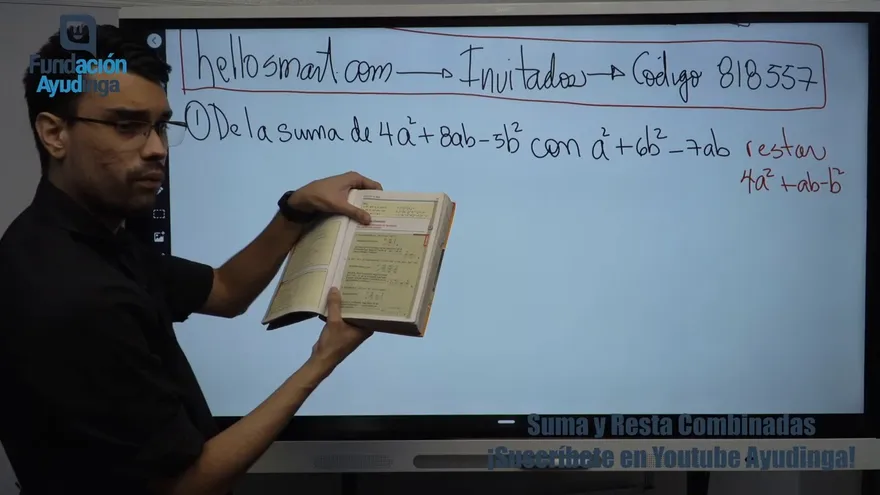 Fundación
Ayudinga
hellosmart.com → Invitados → Código 818557
① De la suma de 4a² + 8ab - 5b² con a² + 6b² - 7ab restar
4a² + ab - b²
Suma y Resta Combinadas
¡Suscríbete en Youtube Ayudinga!